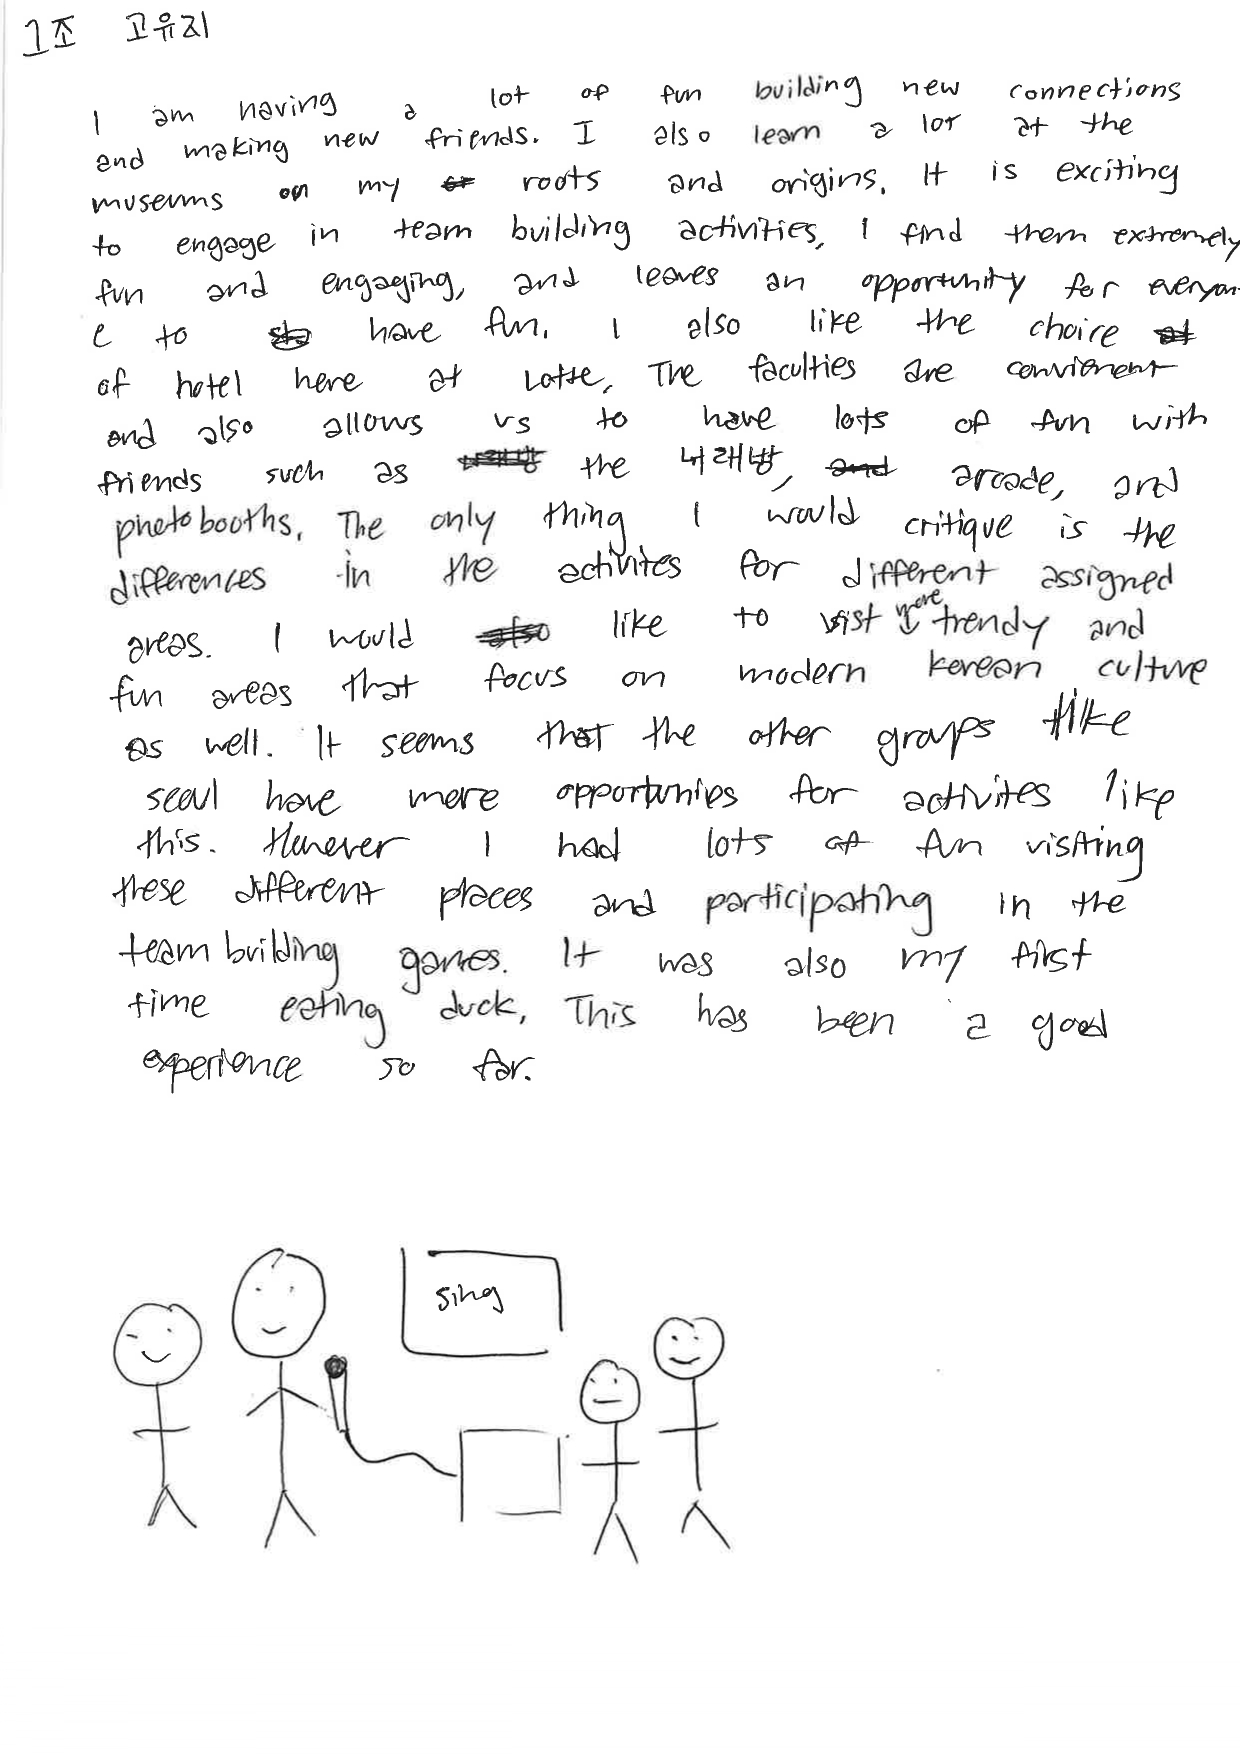 1조 고유지
I am having a lot of fun building new connections
and making new friends. I also learn a lot at the
museums on my roots and origins. It is exciting
to engage in team building activities, I find them extremely
fun and engaging, and leaves an opportunity for everyon
e to have fun. I also like the choice
of hotel here at Lotte. The faculties are convienent
and also allows us to have lots of fun with
friends such as the 너래방, arcade, and
photobooths. The only thing I would critique is the
differences in the activites for different assigned
areas. I would like to vist more trendy and
fun areas that focus on modern korean culture
as well. It seems that the other groups like
seoul have more opportunies for activites like
this. However I had lots of fun visiting
these different places and participating in the
team building games. It was also my first
time eating duck. This has been a good
experience so far.
sing